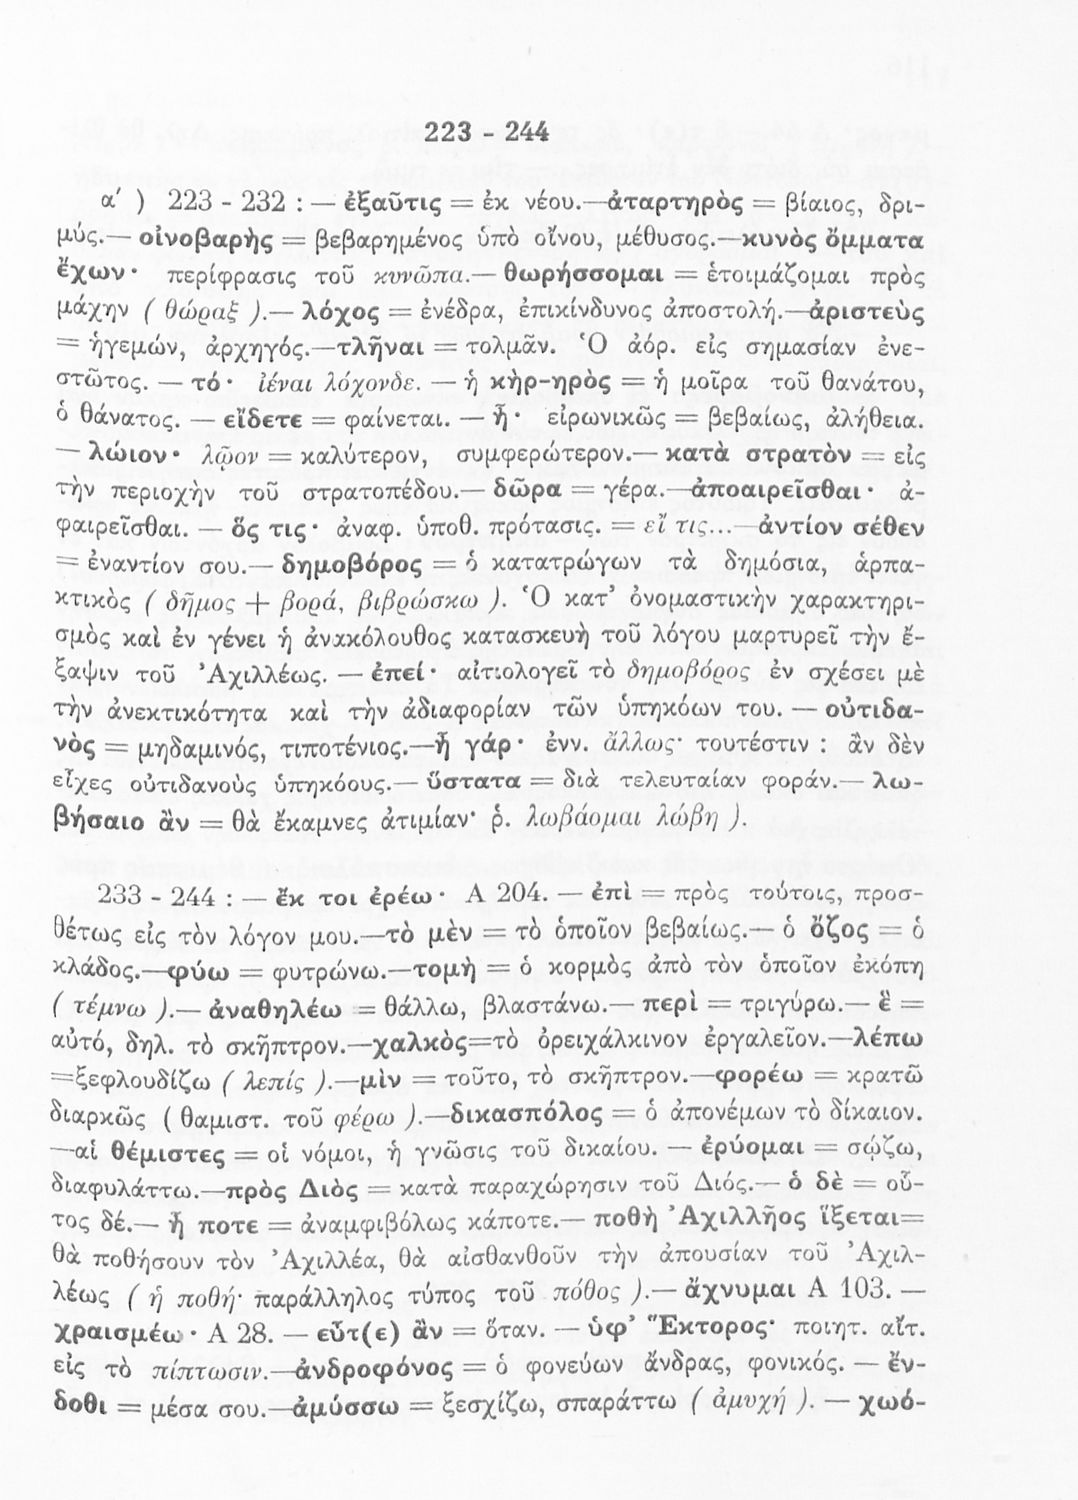 223 - 244
α΄ ) 223 - 232 : — ἐξαῦτις = ἐκ νέου.—ἀταρτηρὸς = βίαιος, δρι-
μύς.— οἰνοβαρὴς = βεβαρημένος ὑπὸ οἴνου, μέθυσος.—κυνὸς ὄμματα
ἔχων· περίφρασις τοῦ κυνῶπα.— θωρήσσομαι = ἑτοιμάζομαι πρὸς
μάχην ( θώραξ ).— λόχος = ἐνέδρα, ἐπικίνδυνος ἀποστολή.—ἀριστεὺς
= ἡγεμών, ἀρχηγός.—τλῆναι = τολμᾶν. Ὁ ἀόρ. εἰς σημασίαν ἐνε-
στῶτος. — τό· ἰέναι λόχονδε. — ἡ κὴρ-ηρὸς = ἡ μοῖρα τοῦ θανάτου,
ὁ θάνατος. — εἴδετε = φαίνεται. — ἦ· εἰρωνικῶς = βεβαίως, ἀλήθεια.
— λώιον· λῷον = καλύτερον, συμφερώτερον.— κατὰ στρατὸν = εἰς
τὴν περιοχὴν τοῦ στρατοπέδου.— δῶρα = γέρα.—ἀποαιρεῖσθαι· ἀ-
φαιρεῖσθαι. — ὅς τις· ἀναφ. ὑποθ. πρότασις. = εἴ τις...—ἀντίον σέθεν
= ἐναντίον σου.— δημοβόρος = ὁ κατατρώγων τὰ δημόσια, ἁρπα-
κτικὸς ( δῆμος + βορά, βιβρώσκω ). Ὁ κατ᾽ ὀνομαστικὴν χαρακτηρι-
σμὸς καὶ ἐν γένει ἡ ἀνακόλουθος κατασκευὴ τοῦ λόγου μαρτυρεῖ τὴν ἔ-
ξαψιν τοῦ Ἀχιλλέως. — ἐπεί· αἰτιολογεῖ τὸ δημοβόρος ἐν σχέσει μὲ
τὴν ἀνεκτικότητα καὶ τὴν ἀδιαφορίαν τῶν ὑπηκόων του. — οὐτιδα-
νὸς = μηδαμινός, τιποτένιος.—ἦ γάρ· ἐνν. ἄλλως· τουτέστιν : ἂν δὲν
εἶχες οὐτιδανοὺς ὑπηκόους.— ὕστατα = διὰ τελευταίαν φοράν.— λω-
βήσαιο ἂν = θὰ ἔκαμνες ἀτιμίαν· ῥ. λωβάομαι λώβη ).
233 - 244 : — ἔκ τοι ἐρέω· Α 204. — ἐπὶ = πρὸς τούτοις, προσ-
θέτως εἰς τὸν λόγον μου.—τὸ μὲν = τὸ ὁποῖον βεβαίως.— ὁ ὄζος = ὁ
κλάδος.—φύω = φυτρώνω.—τομὴ = ὁ κορμὸς ἀπὸ τὸν ὁποῖον ἐκόπη
( τέμνω ).— ἀναθηλέω = θάλλω, βλαστάνω.— περὶ = τριγύρω.— ἓ =
αὐτό, δηλ. τὸ σκῆπτρον.—χαλκὸς=τὸ ὀρειχάλκινον ἐργαλεῖον.—λέπω
=ξεφλουδίζω ( λεπίς ).—μὶν = τοῦτο, τὸ σκῆπτρον.—φορέω = κρατῶ
διαρκῶς ( θαμιστ. τοῦ φέρω ).—δικασπόλος = ὁ ἀπονέμων τὸ δίκαιον.
—αἱ θέμιστες = οἱ νόμοι, ἡ γνῶσις τοῦ δικαίου. — ἐρύομαι = σῴζω,
διαφυλάττω.—πρὸς Διὸς = κατὰ παραχώρησιν τοῦ Διός.— ὁ δὲ = οὗ-
τος δέ.— ἦ ποτε = ἀναμφιβόλως κάποτε.— ποθὴ Ἀχιλλῆος ἵξεται=
θὰ ποθήσουν τὸν Ἀχιλλέα, θὰ αἰσθανθοῦν τὴν ἀπουσίαν τοῦ Ἀχιλ-
λέως ( ἡ ποθή· παράλληλος τύπος τοῦ πόθος ).— ἄχνυμαι Α 103. —
χραισμέω· Α 28. — εὖτ(ε) ἂν = ὅταν. — ὑφ᾽ Ἕκτορος· ποιητ. αἴτ.
εἰς τὸ πίπτωσιν.—ἀνδροφόνος = ὁ φονεύων ἄνδρας, φονικός. — ἔν-
δοθι = μέσα σου.—ἀμύσσω = ξεσχίζω, σπαράττω ( ἀμυχή ). — χωό-